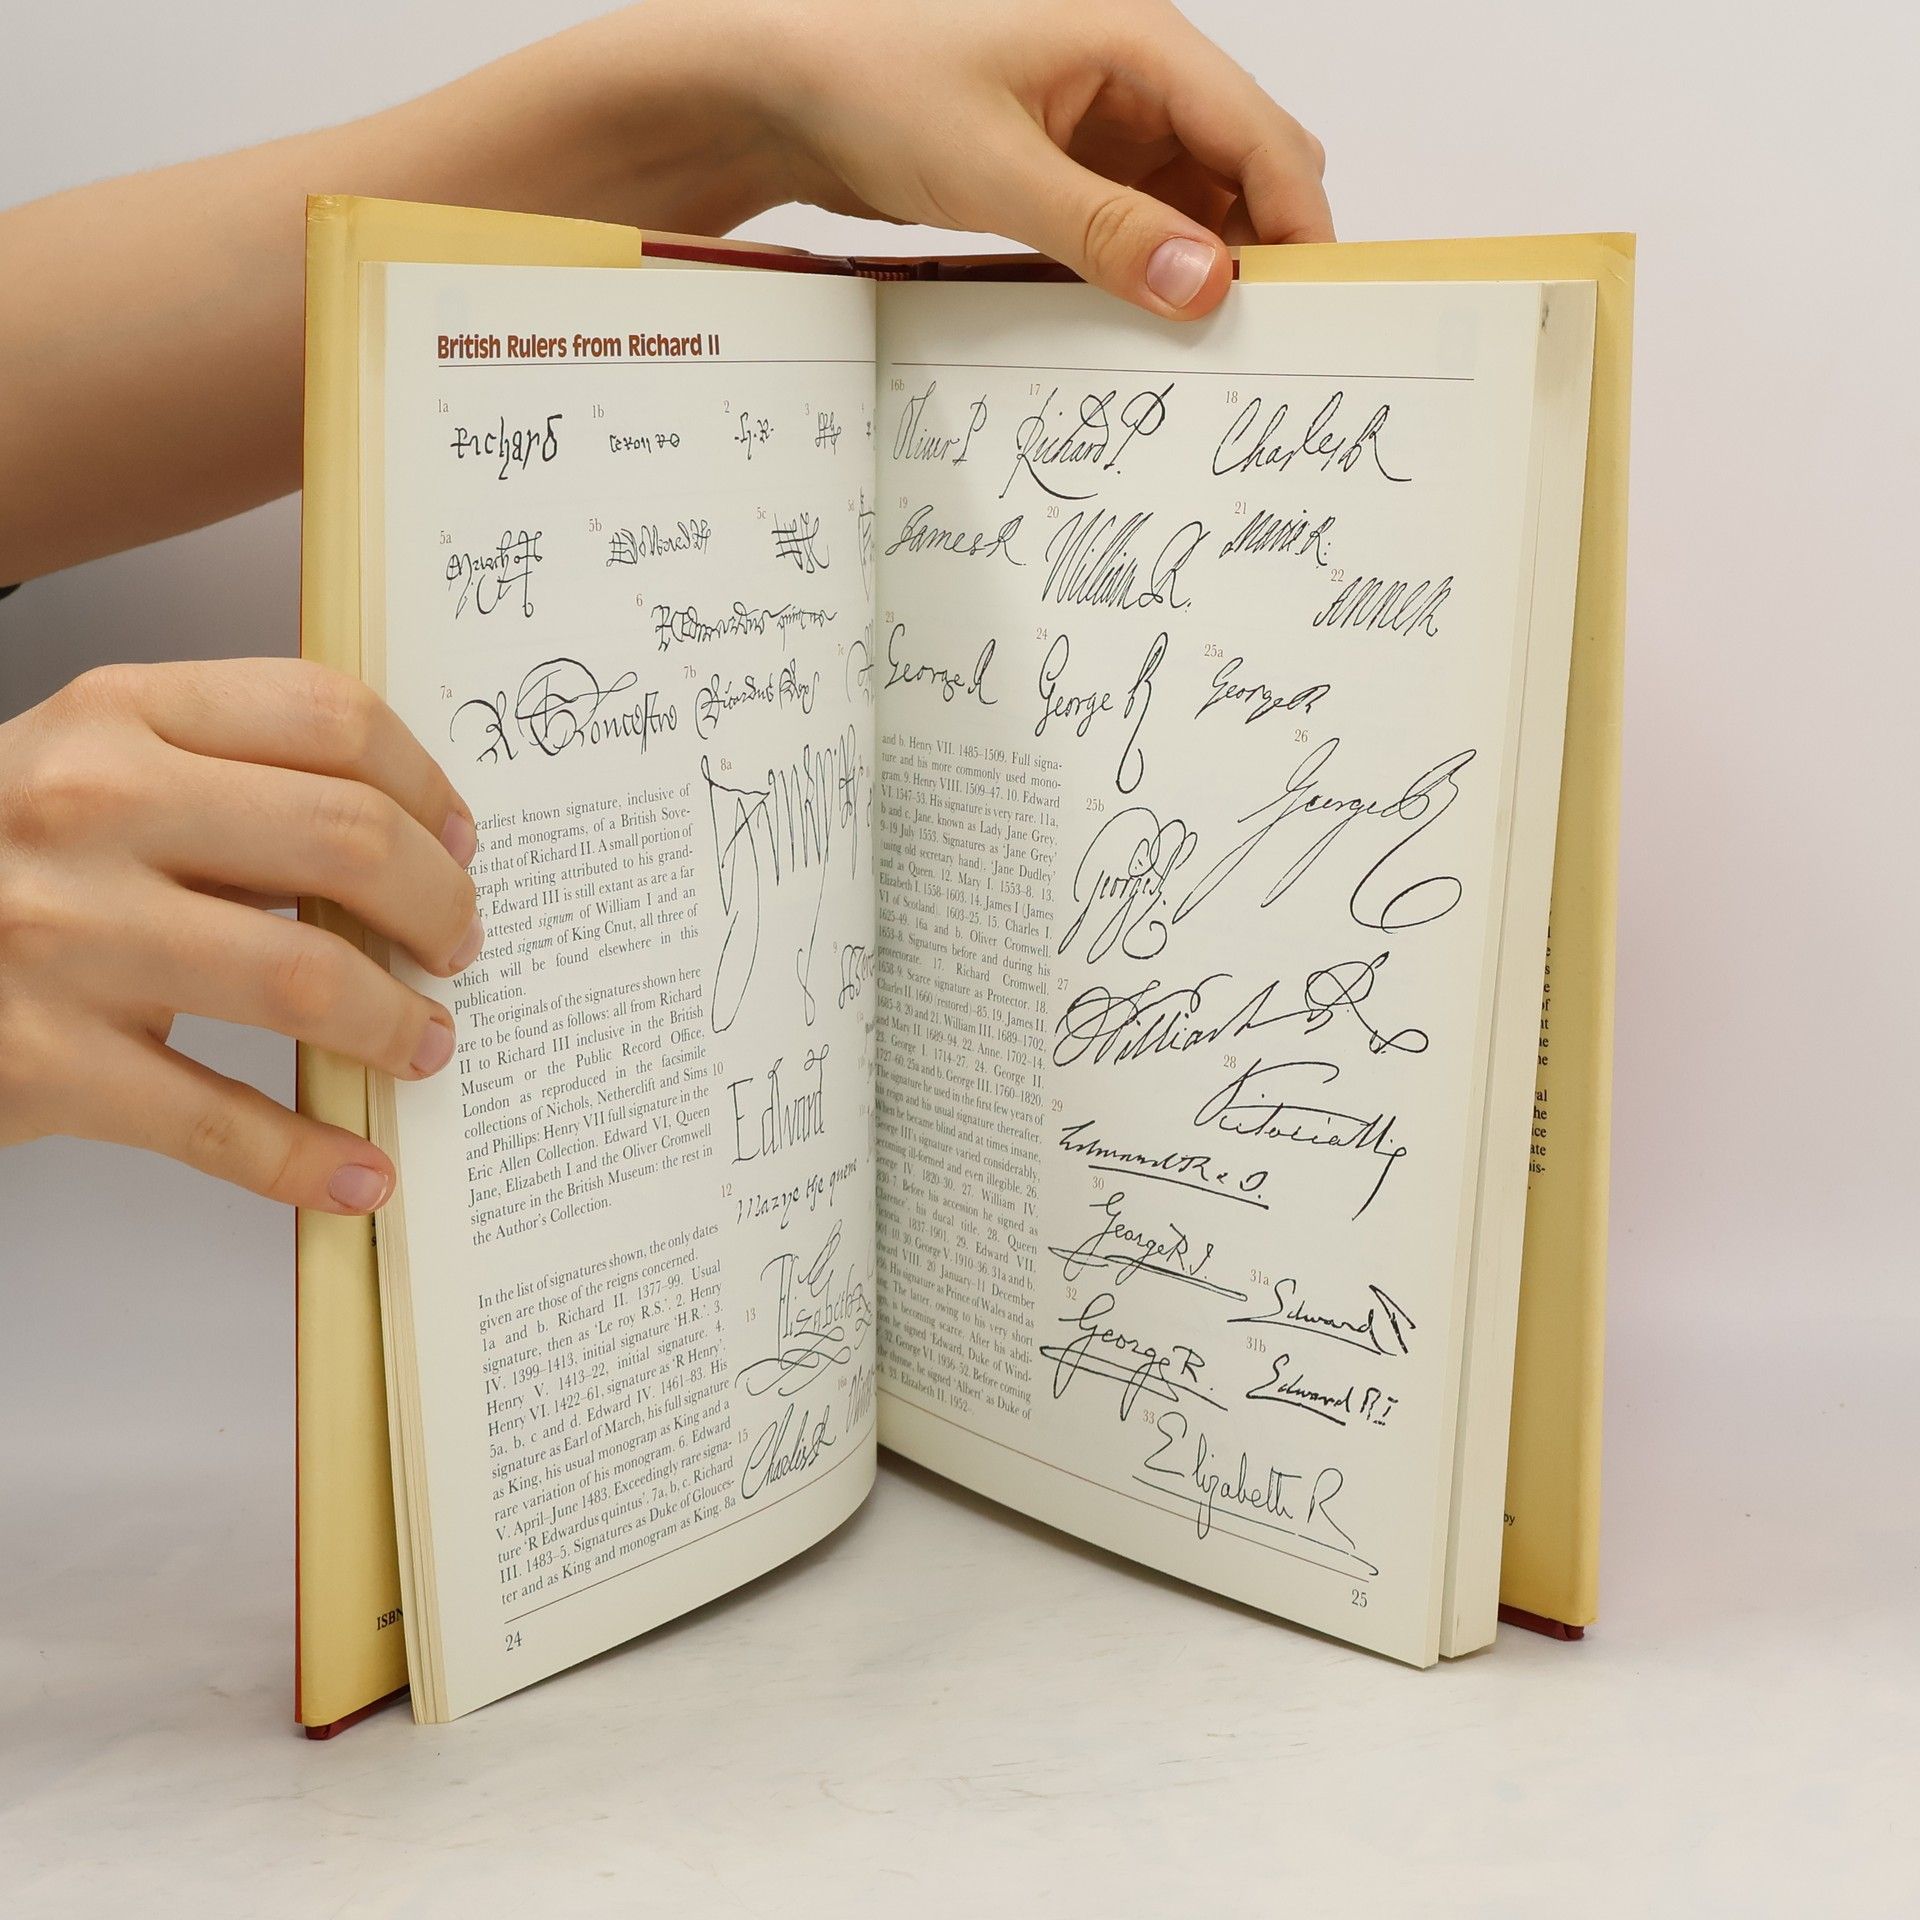 British Rulers from Richard II
1a
1b
2
3
Richard
5a
5b
5c
5d
6
7a
7b
7c
8a
earliest known signature, inclusive of
ls and monograms, of a British Sove-
n is that of Richard II. A small portion of
graph writing attributed to his grand-
r, Edward III is still extant as are a far
attested signum of William I and an
ttested signum of King Cnut, all three of
which will be found elsewhere in this
publication.
The originals of the signatures shown here
are to be found as follows: all from Richard
II to Richard III inclusive in the British
Museum or the Public Record Office,
London as reproduced in the facsimile
collections of Nichols, Netherclift and Sims
and Phillips: Henry VII full signature in the
Eric Allen Collection. Edward VI, Queen
Jane, Elizabeth I and the Oliver Cromwell
signature in the British Museum: the rest in
the Author's Collection.
In the list of signatures shown, the only dates
given are those of the reigns concerned.
1a and b. Richard II. 1377–99. Usual
signature, then as 'Le roy R.S.'. 2. Henry
IV. 1399–1413, initial signature 'H.R.'. 3.
Henry V. 1413–22, initial signature. 4.
Henry VI. 1422-61, signature as 'R Henry'.
5a, b, c and d. Edward IV. 1461–83. His
signature as Earl of March, his full signature
as King, his usual monogram as King and a
rare variation of his monogram. 6. Edward
V. April–June 1483. Exceedingly rare signa-
ture 'R Edwardus quintus'. 7a, b, c. Richard
III. 1483–5. Signatures as Duke of Glouces-
ter and as King and monogram as King. 8a
9
10
Edward
12
Marye the quene
13
Elizabeth
15
Charles R
16a
24
16b
17
18
Oliver P
Richard P.
Charles R
19
20
21
James R
William R.
Marie R.
22
Anne R
23
24
25a
George R
George R
George R
and b. Henry VII. 1485–1509. Full signa-
ture and his more commonly used mono-
gram. 9. Henry VIII. 1509–47. 10. Edward
VI. 1547–53. His signature is very rare. 11a,
b and c. Jane, known as Lady Jane Grey.
9–19 July 1553. Signatures as 'Jane Grey'
(using old secretary hand), 'Jane Dudley'
and as Queen. 12. Mary I. 1553–8. 13.
Elizabeth I. 1558–1603. 14. James I (James
VI of Scotland). 1603–25. 15. Charles I.
1625–49. 16a and b. Oliver Cromwell.
1653–8. Signatures before and during his
protectorate. 17. Richard Cromwell.
1658–9. Scarce signature as Protector. 18.
Charles II. 1660 (restored)–85. 19. James II.
1685–8. 20 and 21. William III. 1689–1702,
and Mary II. 1689–94. 22. Anne. 1702–14.
23. George I. 1714–27. 24. George II.
1727–60. 25a and b. George III. 1760–1820.
The signature he used in the first few years of
his reign and his usual signature thereafter.
When he became blind and at times insane,
George III's signature varied considerably,
becoming ill-formed and even illegible. 26.
George IV. 1820–30. 27. William IV.
830–7. Before his accession he signed as
Clarence', his ducal title. 28. Queen
ictoria. 1837–1901. 29. Edward VII.
901–10. 30. George V. 1910–36. 31a and b.
dward VIII. 20 January–11 December
36. His signature as Prince of Wales and as
ing. The latter, owing to his very short
ign, is becoming scarce. After his abdi-
ion he signed 'Edward, Duke of Wind-
. 32. George VI. 1936–52. Before coming
the throne, he signed 'Albert' as Duke of
k. 33. Elizabeth II. 1952–.
25b
26
George R
George R
27
William R.
28
Victoria
29
30
George R.I.
31a
Edward P
32
George R.
31b
Edward RI
33
Elizabeth R
25
ISBN
by